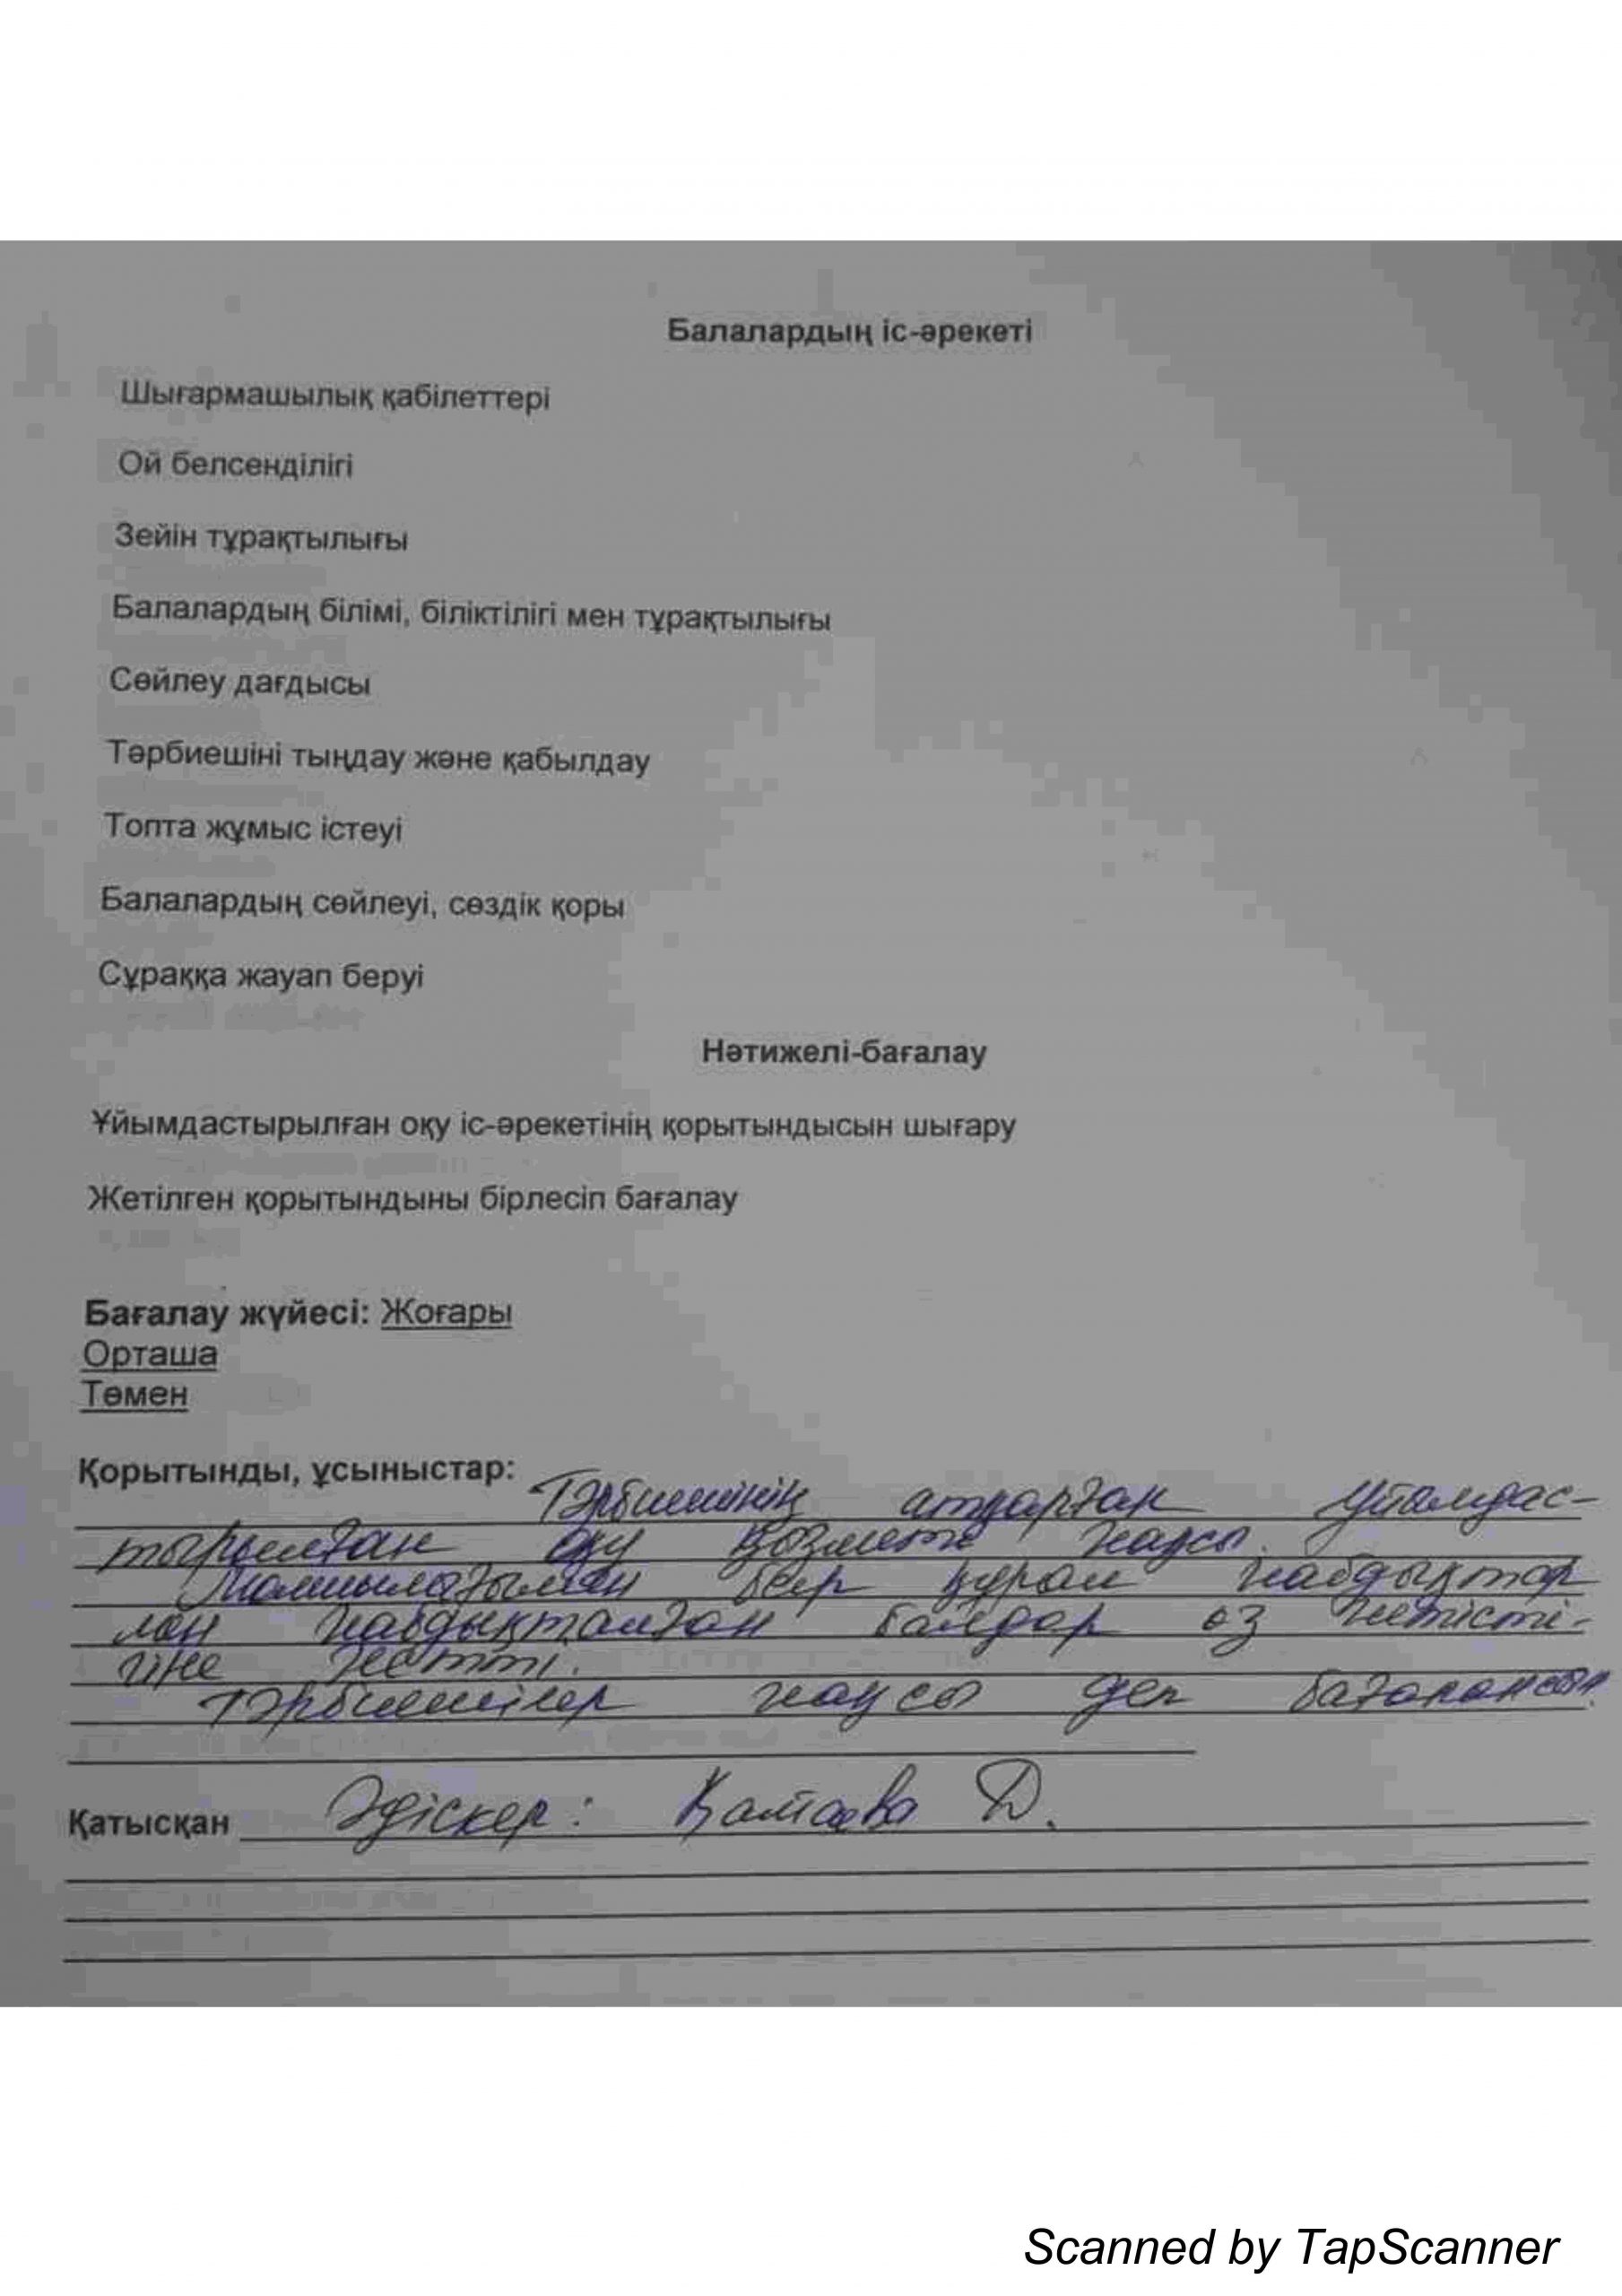 Балалардың іс-әрекеті
Шығармашылық қабілеттері
Ой белсенділігі
Зейін тұрақтылығы
Балалардың білімі, біліктілігі мен тұрақтылығы
Сөйлеу дағдысы
Тәрбиешіні тыңдау және қабылдау
Топта жұмыс істеуі
Балалардың сөйлеуі, сөздік қоры
Сұраққа жауап беруі
Нәтижелі-бағалау
Ұйымдастырылған оқу іс-әрекетінің қорытындысын шығару
Жетілген қорытындыны бірлесіп бағалау
Бағалау жүйесі: Жоғары
Орташа
Төмен
Қорытынды, ұсыныстар:
Тәрбиешінің атқарған ұйымдас-
тырылған оқу қызметі жақсы.
құрал жабдықтар
мен жабдықталған балдар өз жетісті-
гіне жетті.
Тәрбиешілер жақсы деп бағалансын.
Қатысқан Әдіскер: Д.
Scanned by TapScanner